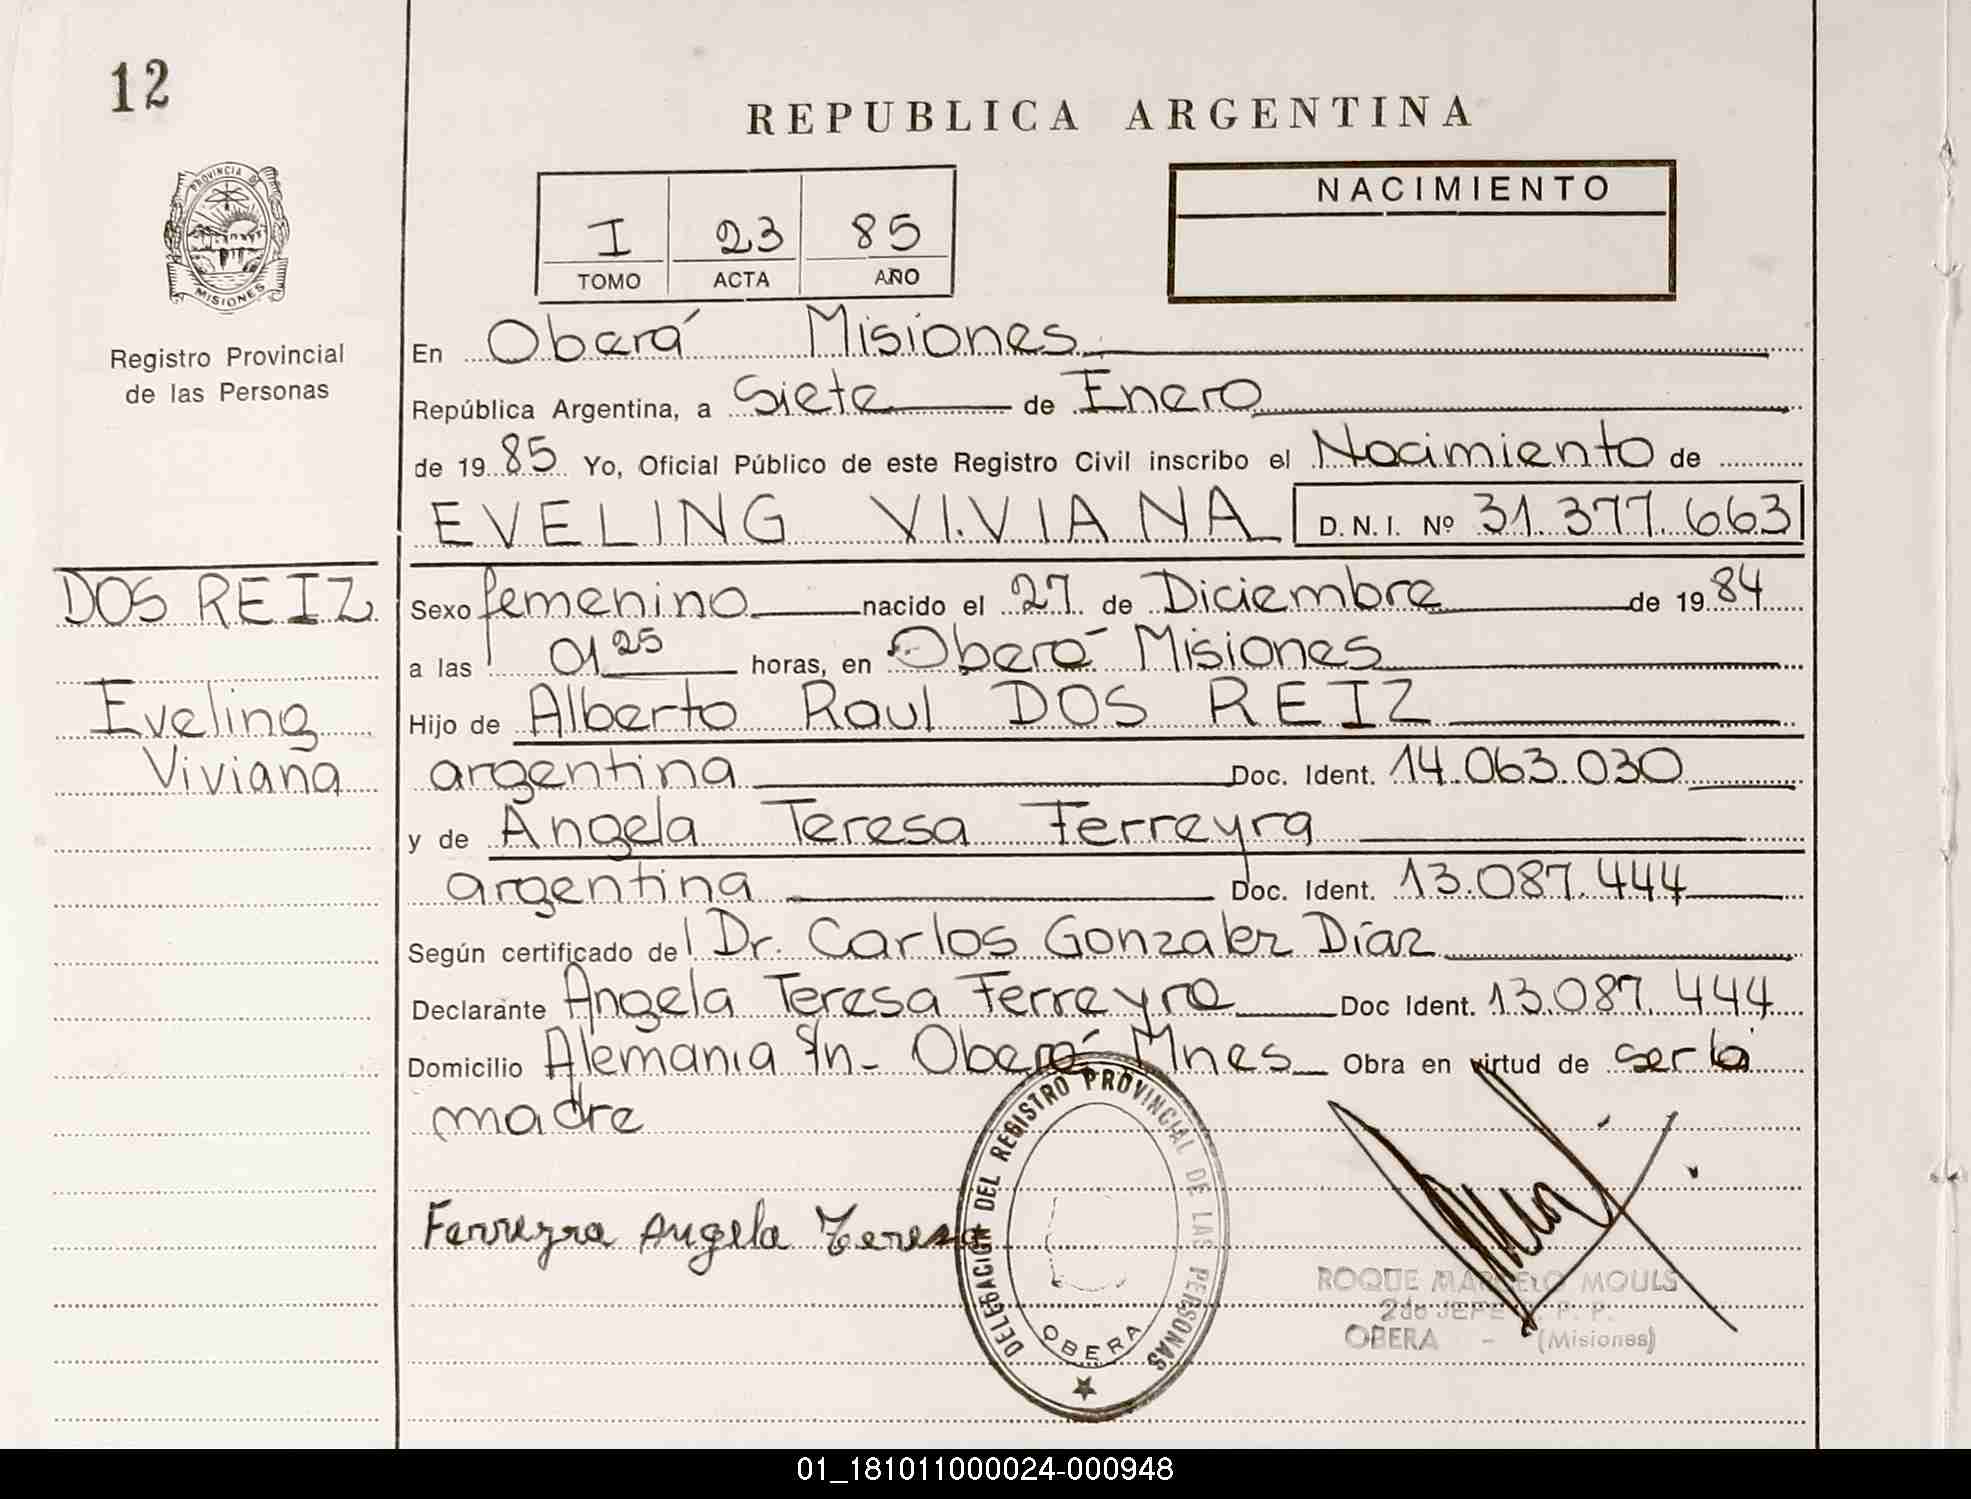 12
REPUBLICA ARGENTINA
PROVINCIA DE
MISIONES
Registro Provincial
de las Personas
I 23 85
TOMO ACTA AÑO
NACIMIENTO
En Oberá Misiones
República Argentina, a Siete de Enero
de 1985 Yo, Oficial Público de este Registro Civil inscribo el Nacimiento de
EVELING VIVIANA D.N.I. Nº 31.377.663
DOS REIZ
Eveling
Viviana
Sexo femenino nacido el 27 de Diciembre de 1984
a las 01 25 horas, en Oberá Misiones
Hijo de Alberto Raul DOS REIZ
argentina Doc. Ident. 14.063.030
y de Angela Teresa Ferreyra
argentina Doc. Ident. 13.087.444
Según certificado del Dr. Carlos Gonzalez Díaz
Declarante Angela Teresa Ferreyra Doc Ident. 13.087.444
Domicilio Alemania S/n- Oberá Mnes Obra en virtud de ser la
madre
Ferreyra Angela Teresa
DELEGACION DEL REGISTRO PROVINCIAL DE LAS PERSONAS
OBERA
ROQUE MARCELO MOULS
2do JEFE R. P. P.
OBERA - (Misiones)
01_181011000024-000948